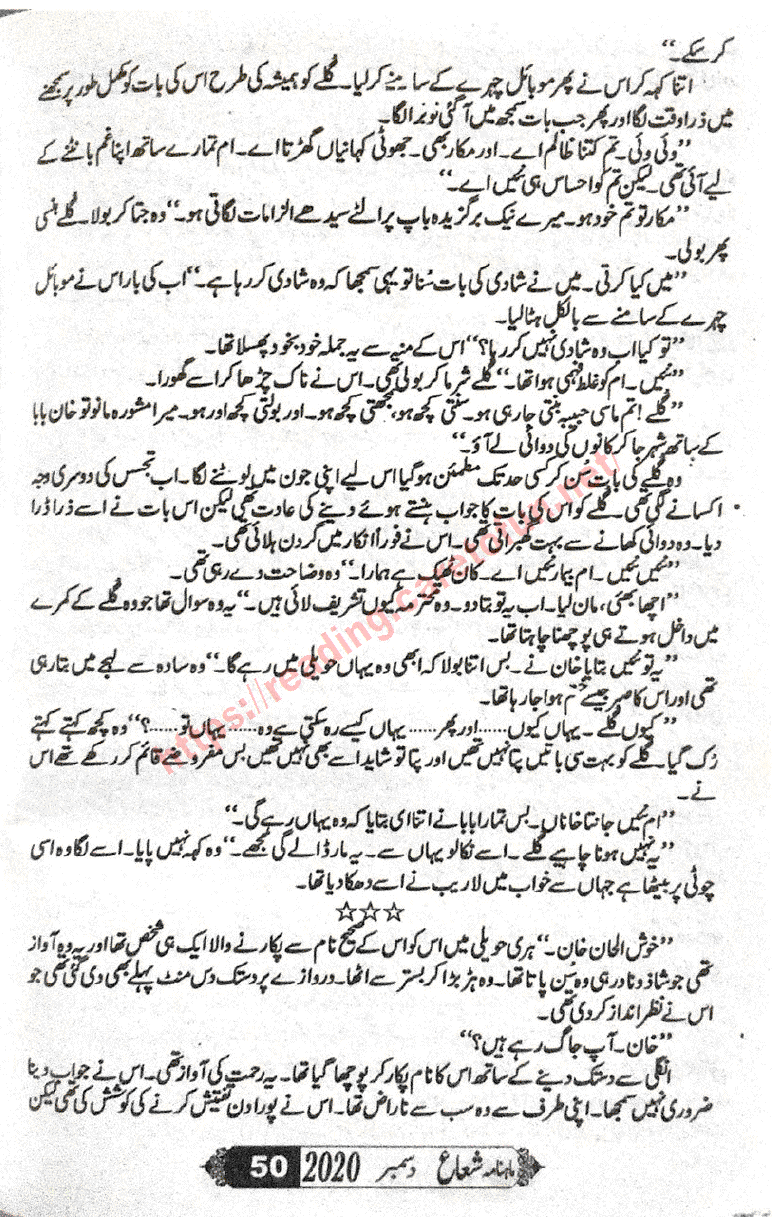 کر سکے۔“
اتنا کہہ کر اس نے پھر موبائل چہرے کے سامنے کر لیا۔ گلے کو ہمیشہ کی طرح اس کی بات کو مکمل طور پر سمجھنے
میں ذرا وقت لگا اور پھر جب بات سمجھ میں آ گئی تو برا لگا۔
”وئی وئی۔ تم کتنا ظالم اے۔ اور مکار بھی۔ جھوٹی کہانیاں گھڑتا اے۔ ام تمارے ساتھ اپنا غم بانٹنے کے
لیے آئی تھی۔ لیکن تم کو احساس ہی نئیں اے۔“
”مکار تو تم خود ہو۔ میرے نیک برگزیدہ باپ پر الٹے سیدھے الزامات لگاتی ہو۔“ وہ جتا کر بولا۔ گلے ہنسی
پھر بولی۔
”میں کیا کرتی۔ میں نے شادی کی بات سنا تو یہی سمجھا کہ وہ شادی کر رہا ہے۔“ اب کی بار اس نے موبائل
چہرے کے سامنے سے بالکل ہٹا لیا۔
”تو کیا اب وہ شادی نہیں کر رہا؟“ اس کے منہ سے یہ جملہ خود بخود پھسلا تھا۔
”نئیں۔ ام کو غلط فہمی ہوا تھا۔“ گلے شرما کر بولی تھی۔ اس نے ناک چڑھا کر اسے گھورا۔
”گلے! تم ماسی حبیبہ بنتی جا رہی ہو۔ سنتی کچھ ہو، سمجھتی کچھ ہو۔ اور بولتی کچھ اور ہو۔ میرا مشورہ مانو تو خان بابا
کے ساتھ شہر جا کر کانوں کی دوائی لے آؤ۔“
وہ گلے کی بات سن کر کسی حد تک مطمئن ہو گیا اس لیے اپنی جون میں لوٹنے لگا۔ اب تجسس کی دوسری وجہ
اکسانے لگی تھی۔ گلے کو اس کی بات کا جواب ہنستے ہوئے دینے کی عادت تھی لیکن اس بات نے اسے ذرا ڈرا
دیا۔ وہ دوائی کھانے سے بہت گھبراتی تھی۔ اس نے فوراً انکار میں گردن ہلائی تھی۔
”نئیں نئیں۔ ام بیمار نئیں اے۔ کان ٹھیک ہے ہمارا۔“ وہ وضاحت دے رہی تھی۔
”اچھا بھئی، مان لیا۔ اب یہ تو بتا دو۔ وہ محترمہ کیوں تشریف لائی ہیں۔“ یہ وہ سوال تھا جو وہ گلے کے کمرے
میں داخل ہوتے ہی پوچھنا چاہتا تھا۔
”یہ تو نئیں بتایا خان نے۔ بس اتنا بولا کہ ابھی وہ یہاں حویلی میں رہے گا۔“ وہ سادہ سے لہجے میں بتا رہی
تھی اور اس کا صبر جیسے ختم ہوا جا رہا تھا۔
”کیوں گلے۔ یہاں کیوں...... اور پھر...... یہاں کیسے رہ سکتی ہے وہ...... یہاں تو......؟“ وہ کچھ کہتے کہتے
رک گیا۔ گلے کو بہت سی باتیں پتا نہیں تھیں اور پتا تو شاید اسے بھی نہیں تھیں بس مفروضے قائم کر رکھے تھے اس
نے۔
”ام نئیں جانتا خاناں۔ بس تمارا بابا نے اتنا ای بتایا کہ وہ یہاں رہے گی۔“
”یہ نہیں ہونا چاہیے گلے۔ اسے نکالو یہاں سے۔ یہ مار ڈالے گی مجھے۔“ وہ کہہ نہیں پایا۔ اسے لگا وہ اسی
چوٹی پر بیٹھا ہے جہاں سے خواب میں لاریب نے اسے دھکا دیا تھا۔
☆☆☆
”خوش الحان خان۔“ ہری حویلی میں اس کو اس کے صحیح نام سے پکارنے والا ایک ہی شخص تھا اور یہ وہ آواز
تھی جو شاذ و نادر ہی وہ سن پاتا تھا۔ وہ ہڑبڑا کر بستر سے اٹھا۔ دروازے پر دستک دس منٹ پہلے بھی دی گئی تھی جو
اس نے نظر انداز کر دی تھی۔
”خان۔ آپ جاگ رہے ہیں؟“
انگلی سے دستک دینے کے ساتھ اس کا نام پکار کر پوچھا گیا تھا۔ یہ رحمت کی آواز تھی۔ اس نے جواب دینا
ضروری نہیں سمجھا۔ اپنی طرف سے وہ سب سے ناراض تھا۔ اس نے پورا دن تفتیش کرنے کی کوشش کی تھی لیکن
ماہنامہ شعاع دسمبر 2020 50
https://reading.careforum.net/